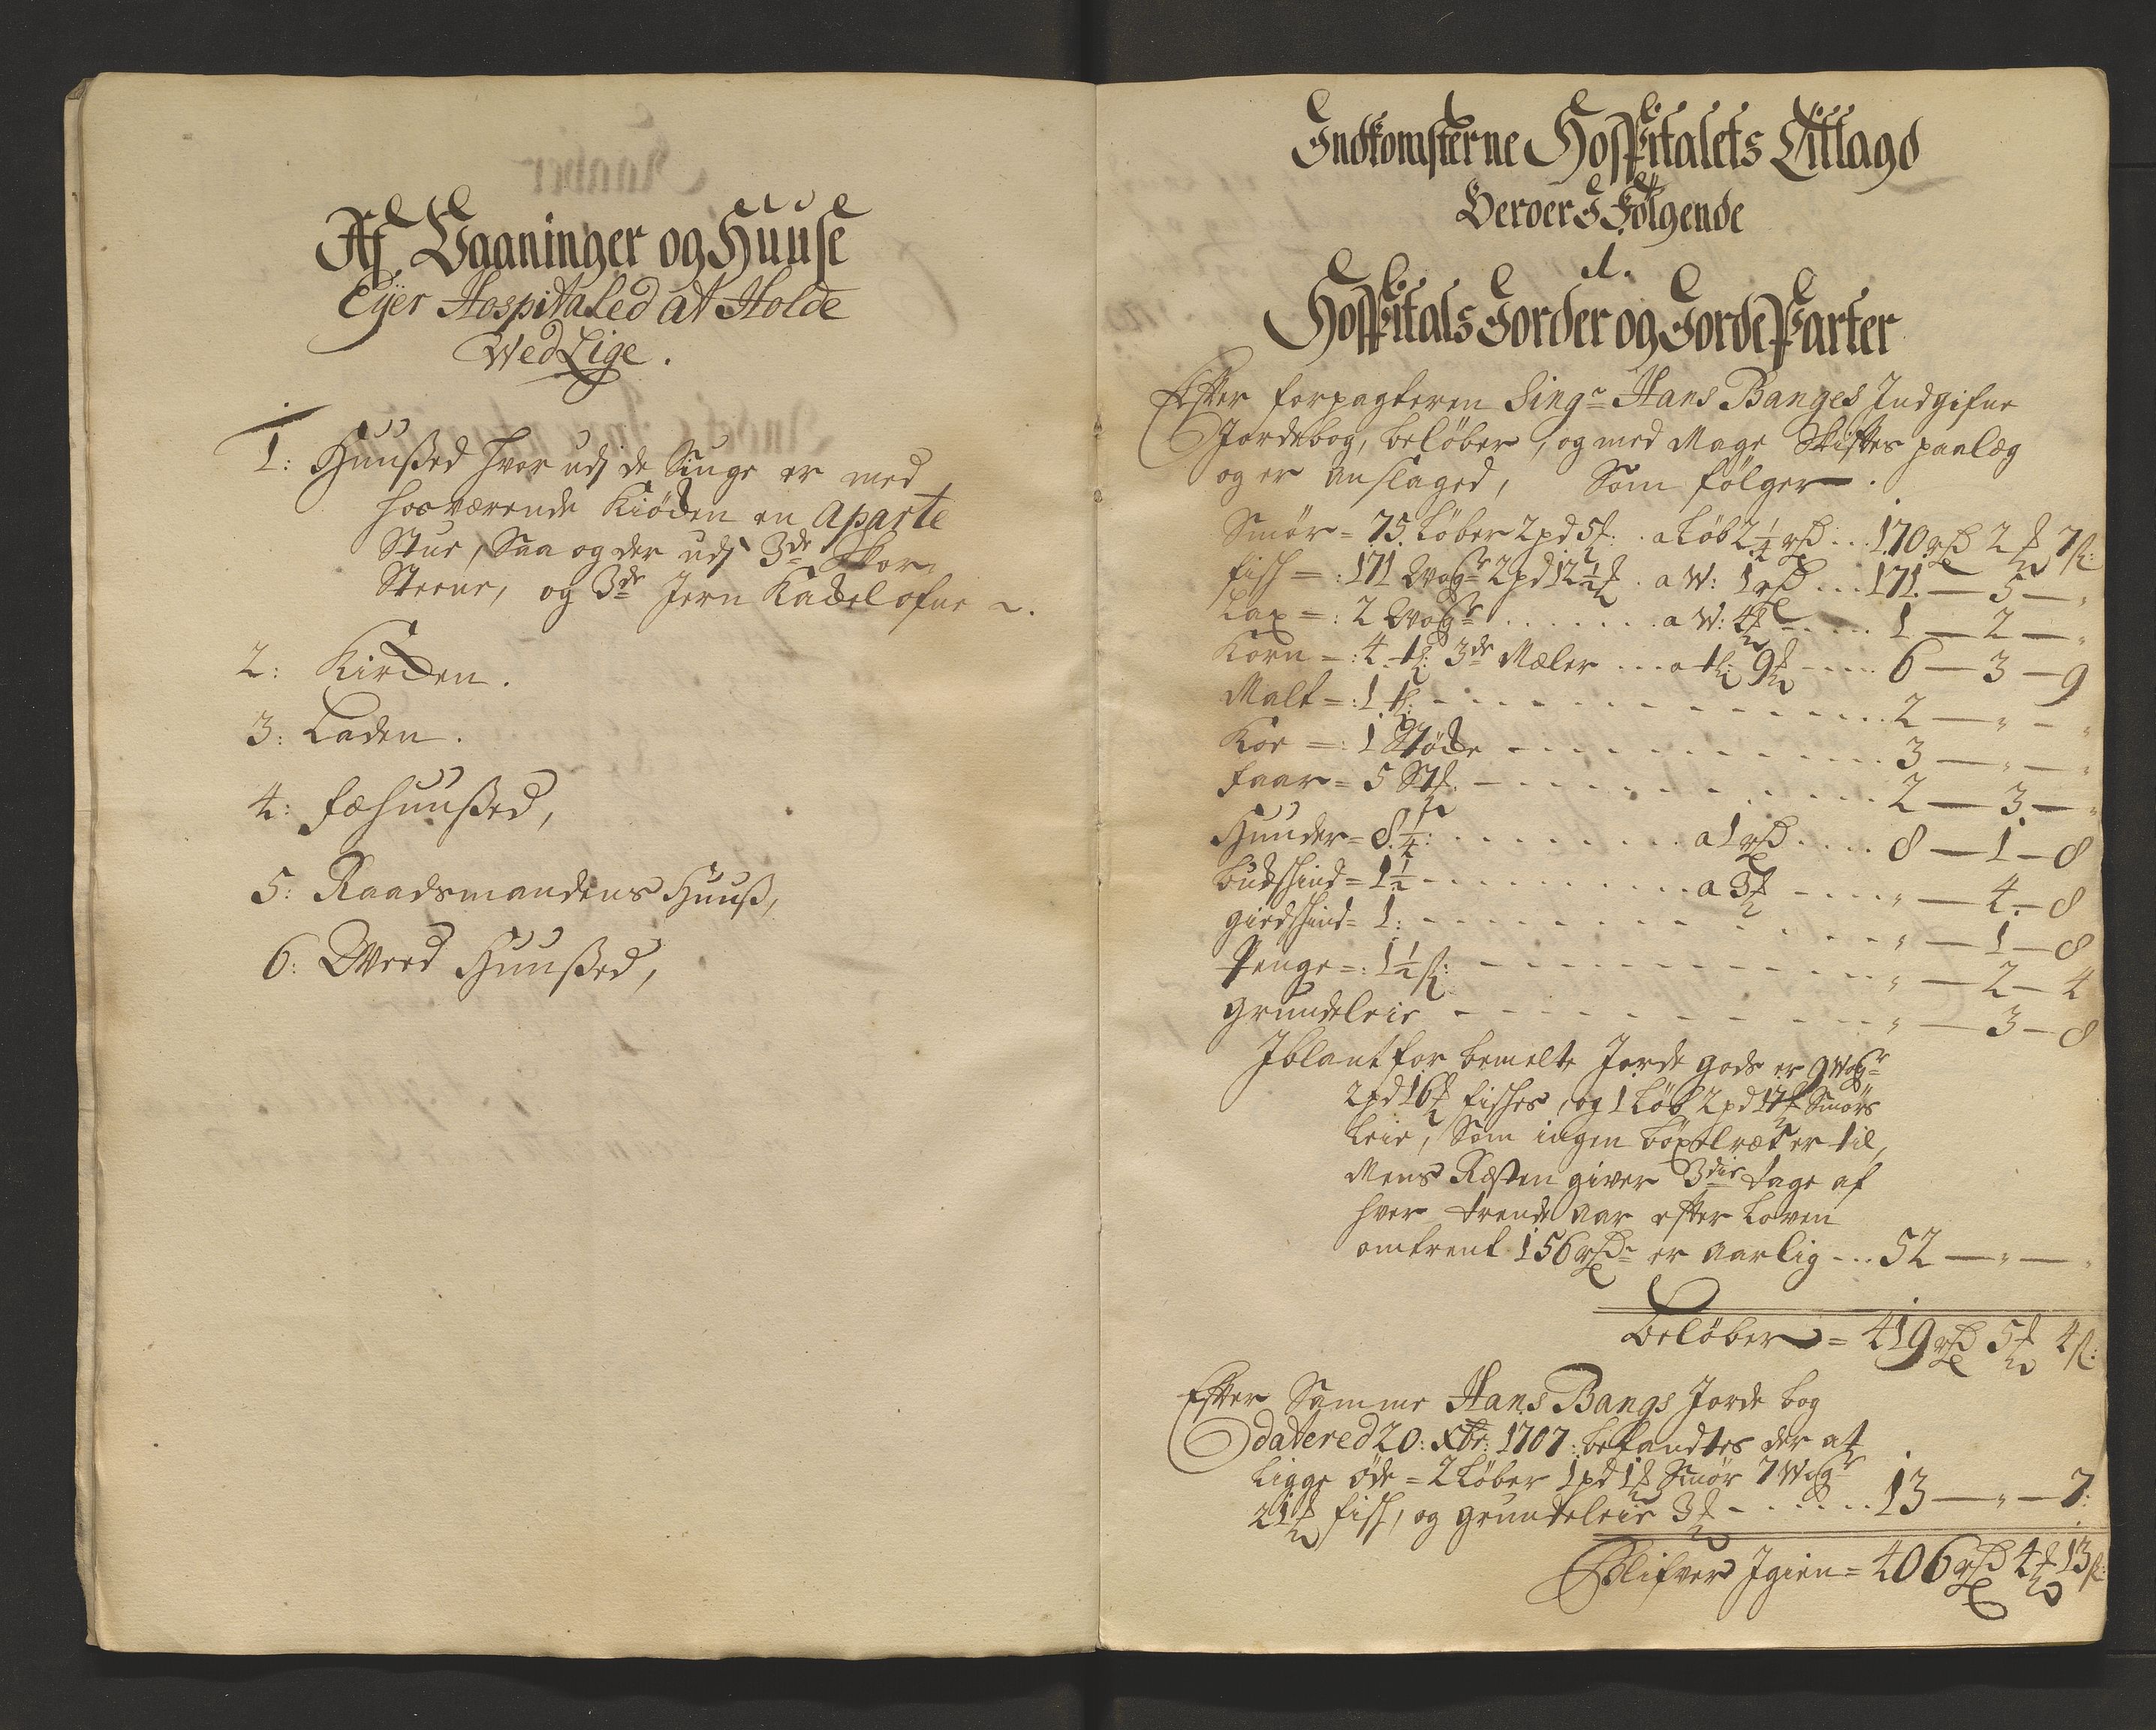 Af Vaaninger og Huuse
Eyer Hospitaled at Holde
Wed Lige.
1: Huußed hvor udj de Siuge er med
hosværende Kiöcken en Aparte
Stue, Saa og der udj 3de Skor
Steene, og 3de Jern Kackelofne
2: Kircken.
3: Laden.
4: Fæhuußed,
5: Raadsmandens Huuß,
6: Weed Huußed,
Indkomsterne Hospitalets Tillagd
Beroer I Fölgende
1.
Hospitals Jorder og Jorde Parter
Efter forpagteren Singr Hans Banges Indgifne
Jordebog, belöber, og med Mage Skiftes paalæg
og er anslaged, Som fölger.
Smör = 75 Löber 2 pd 5 ℔. a Löb 2 1/4 rdr ... 170 rdr 2 ℔ 7 ß:
Fisk = : 171 Wogr 2 pd 12 1/2 ℔. a W: 1 rdr ... 171. — 5 — „
Lax = : 2 Wogr . . . . . . a W: 4 ℔ — . . . . 1 — 2 — „
Korn = : 4 tr: 3de Mæler ... a tr: 9 ℔ - . . . . 6 — 3 — 9
Malt = : 1 tr: - - - - - - - - 2 — „ — „
Koe = : 1 Stöcke - - - - - - - - 3 — „ — „
Faar = 5 Stk. - - - - - - - - 2 — 3. — „
Huuder = 8 1/4: . . . . . . . a 1 rdr . . . . 8 — 1 — 8
Buckskind = 1 1/2 - - - - - - - a 3 ℔ - - - - „ — 4. — 8
Giedskind = 1: - - - - - - - - „ — 1 — 8
Penge = : 1 1/2 ß: - - - - - - - - „ — 2 — 4
Grundeleie - - - - - - - - „ — 3 — 8
Iblant for bemelte Jorde gods er 9 Wogr
2 pd 16 ℔ fiskes, og 1 Löb 2 pd 17 ℔ Smörs
Leie, Som ingen böxelræt er til,
Mens Resten giver 3die tage af
hver trende Aar efter Loven
omtrent 156 rdr er Aarlig ... 52 — „ — „
Belöber = 419 rdr 5 ℔ 4 ß:
Efter Samme Hans Bangs Jorde bog
datered 20: Xbr: 1707: befandtes der at
ligge öde = 2 Löber 1 pd 1 ℔ Smör 7 Wogr
21 ℔ fisk, og grundeleie 3 ℔ - . . . . . 13 — „ — 7:
Blifver Igien = 406 rdr 4 ℔ 13 ß: